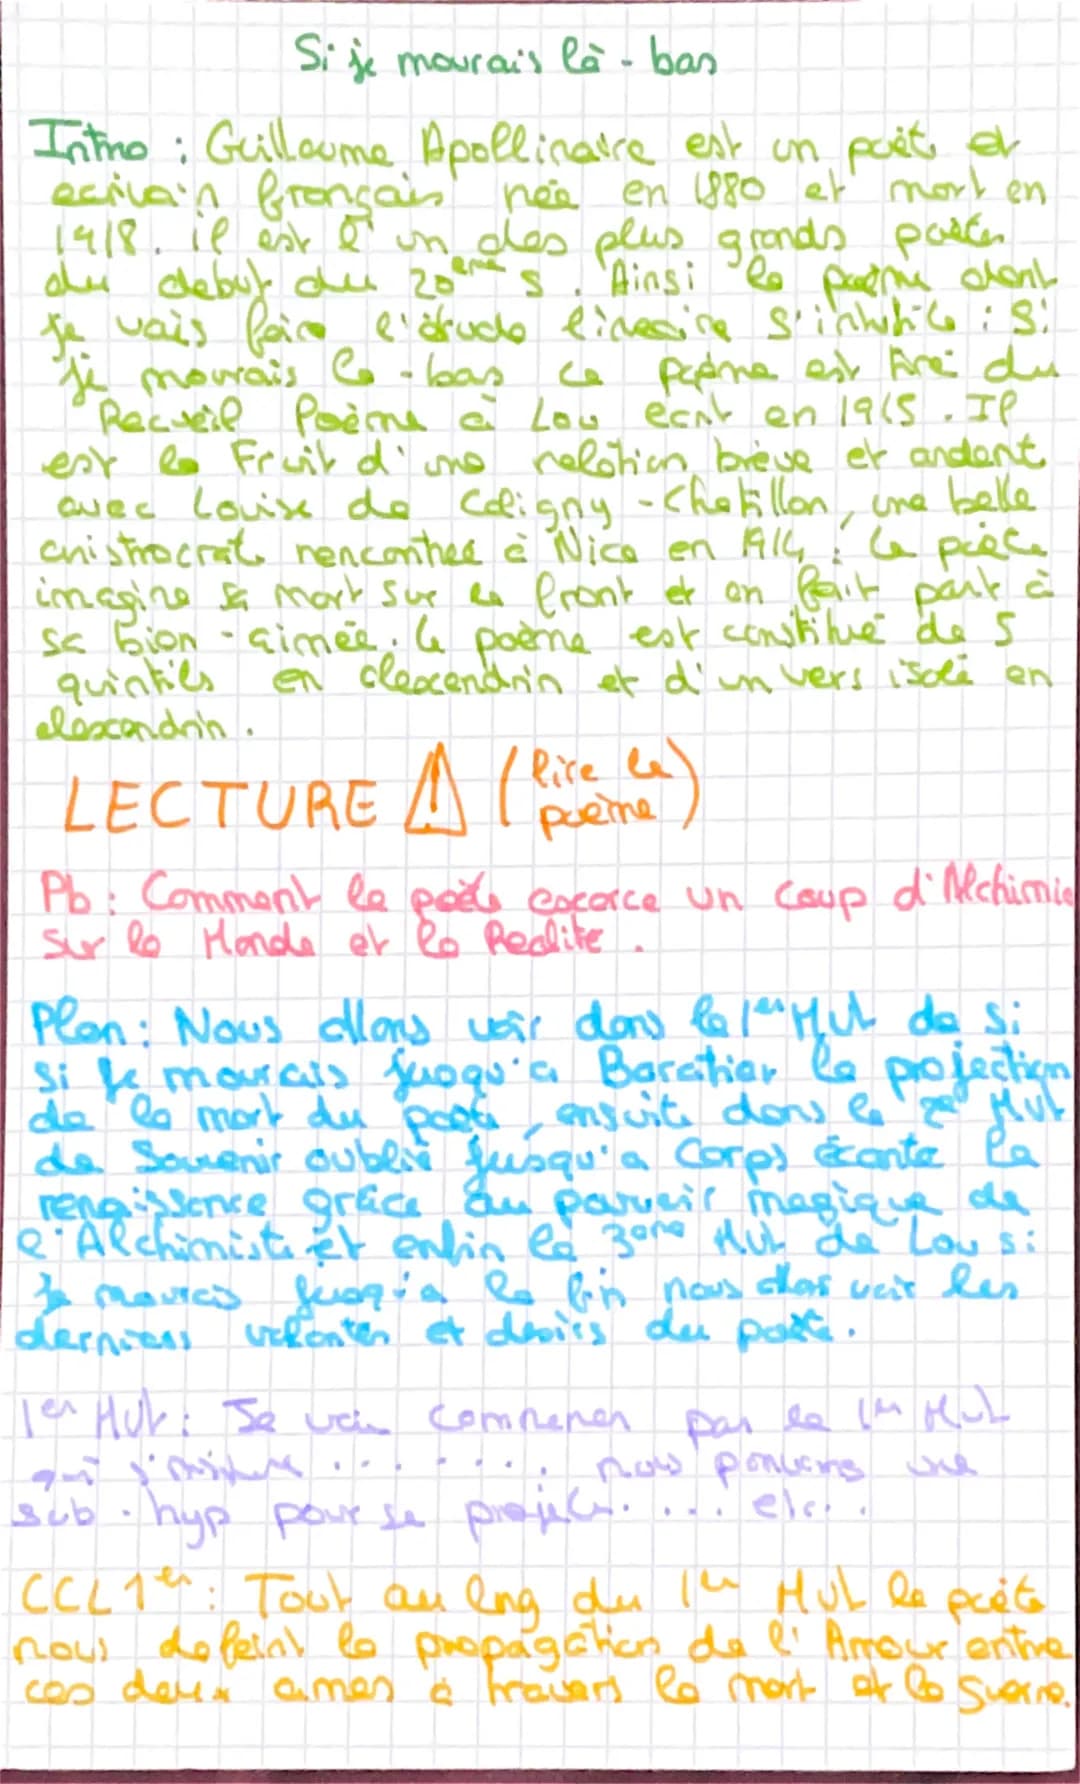 Si je mourais là-bas
Intro : Guillaume Apollinaire est un poète et
ecrivain français née en 1880 et mort en
1918. il est l'un des plus grands poètes
du debut du 20ème s. Ainsi le poème dont
je vais faire l'étude lineaire s'intitile : Si
je mourais la-bas ce poème est tiré du
Recueil Poème à Lou ecrit en 1915. Il
est le Fruit d'une relation brève et ardent
avec Louise de Coligny-Chatillon, une belle
aristrocrate rencontrée à Nice en 1914 : Le poète
imagine sa mort sur le front et en fait part à
sa bien-aimée. Le poème est constitué de 5
quintils en alexandrin et d'un vers isolé en
alexandrin.
LECTURE ⚠ (lire le
poème)
Pb : Comment le poète exerce un Coup d'Alchimie
sur le Monde et la Realite.
Plan : Nous allons voir dans le 1er Mvt de si
si je mourais jusqu'a Baratier la projection
de la mort du poète, ensuite dans le 2e Mvt
de Souvenir oublié jusqu'a Corps écarte la
renaissence grâce au pouvoir magique de
l'Alchimiste et enfin le 3eme Mvt de Lou si
je mourais jusqu'a la fin nous allons voir les
derniers volontés et désirs du poète.
1er Mvt : Je vais commencer par le 1er Mvt
qui s'intitule ........ nous pouvons une
sub. hyp pour se projeter..... etc..
CCL 1er : Tout au lng du 1er Mvt le poète
nous defeint la propagation de l'Amour entre
ces deux aimes à travers la mort et la guerre.